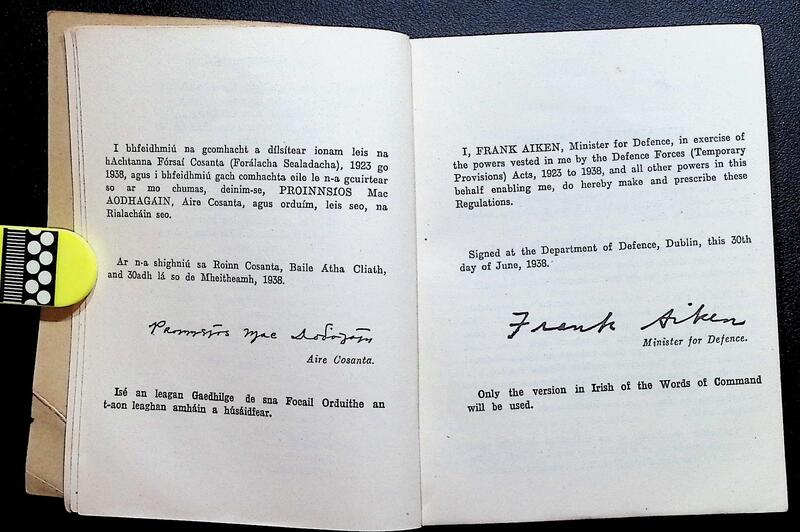 I bhfeidhmiú na gcomhacht a dílsítear ionam leis na
hAchtanna Fórsaí Cosanta (Forálacha Sealadacha), 1923 go
1938, agus i bhfeidhmiú gach comhachta eile le n-a gcuirtear
so ar mo chumas, deinim-se, PROINNSIOS Mac
AODHAGAIN, Aire Cosanta, agus orduím, leis seo, na
Rialacháin seo.
Ar n-a shighniú sa Roinn Cosanta, Baile Atha Cliath,
and 30adh lá so de Mheitheamh, 1938.
Proinnsjos Mac Aodhagáin
Aire Cosanta.
Isé an leagan Gaedhilge de sna Focail Orduithe an
t-aon leaghan amháin a húsáidfear.
I, FRANK AIKEN, Minister for Defence, in exercise of
the powers vested in me by the Defence Forces (Temporary
Provisions) Acts, 1923 to 1938, and all other powers in this
behalf enabling me, do hereby make and prescribe these
Regulations.
Signed at the Department of Defence, Dublin, this 30th
day of June, 1938.
Frank Aiken
Minister for Defence.
Only the version in Irish of the Words of Command
will be used.